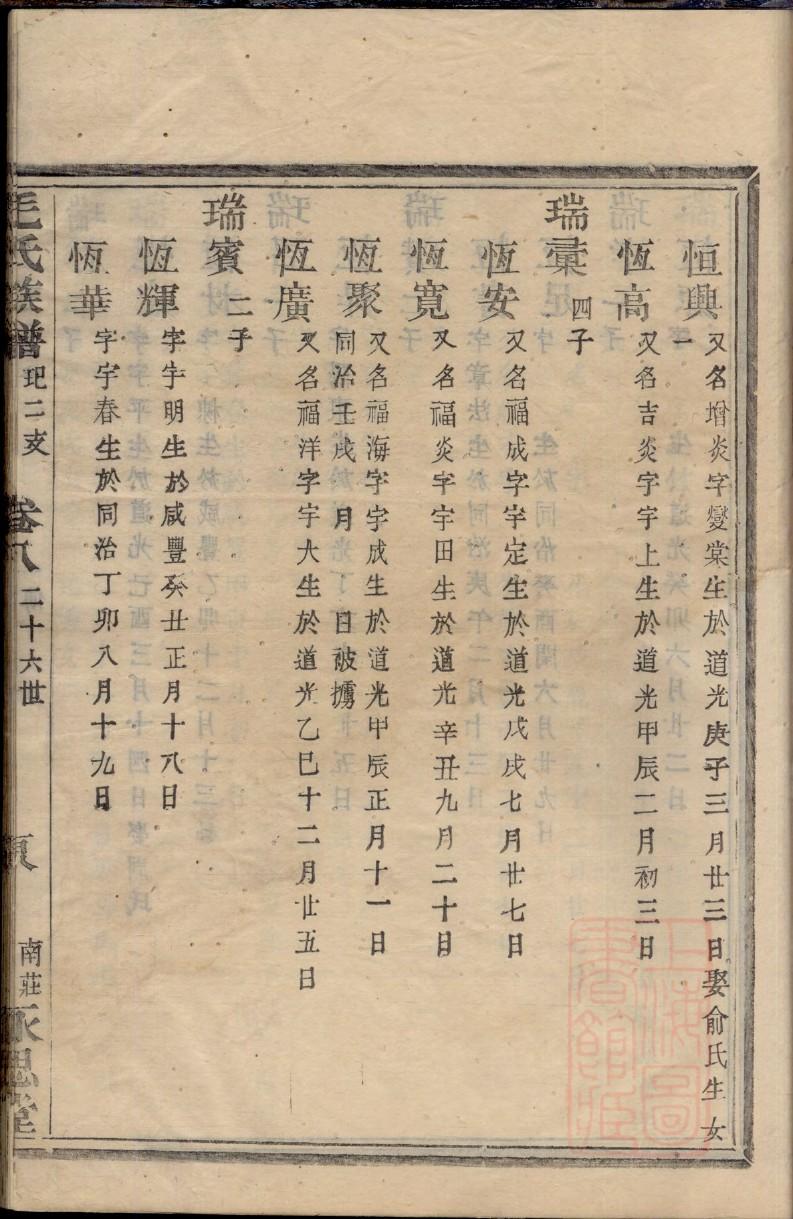 恒興 又名增炎字燮棠生於道光庚子三月廿三日娶俞氏生一女
恆高 又名吉炎字宇上生於道光甲辰二月初三日
瑞彙 四子
恆安 又名福成字宇定生於道光戊戌七月廿七日
恆寬 又名福炎字宇田生於道光辛丑九月二十日
恆聚 又名福海字宇成生於道光甲辰正月十一日
同治壬戌 月 日被擄
恆廣 又名福洋字宇大生於道光乙巳十二月廿五日
瑞賓 二子
恆輝 字宇明生於咸豐癸丑正月十八日
恆華 字宇春生於同治丁卯八月十九日
毛氏族譜 玘二支 卷八 二十六世 南莊 永思堂
上海圖書館藏